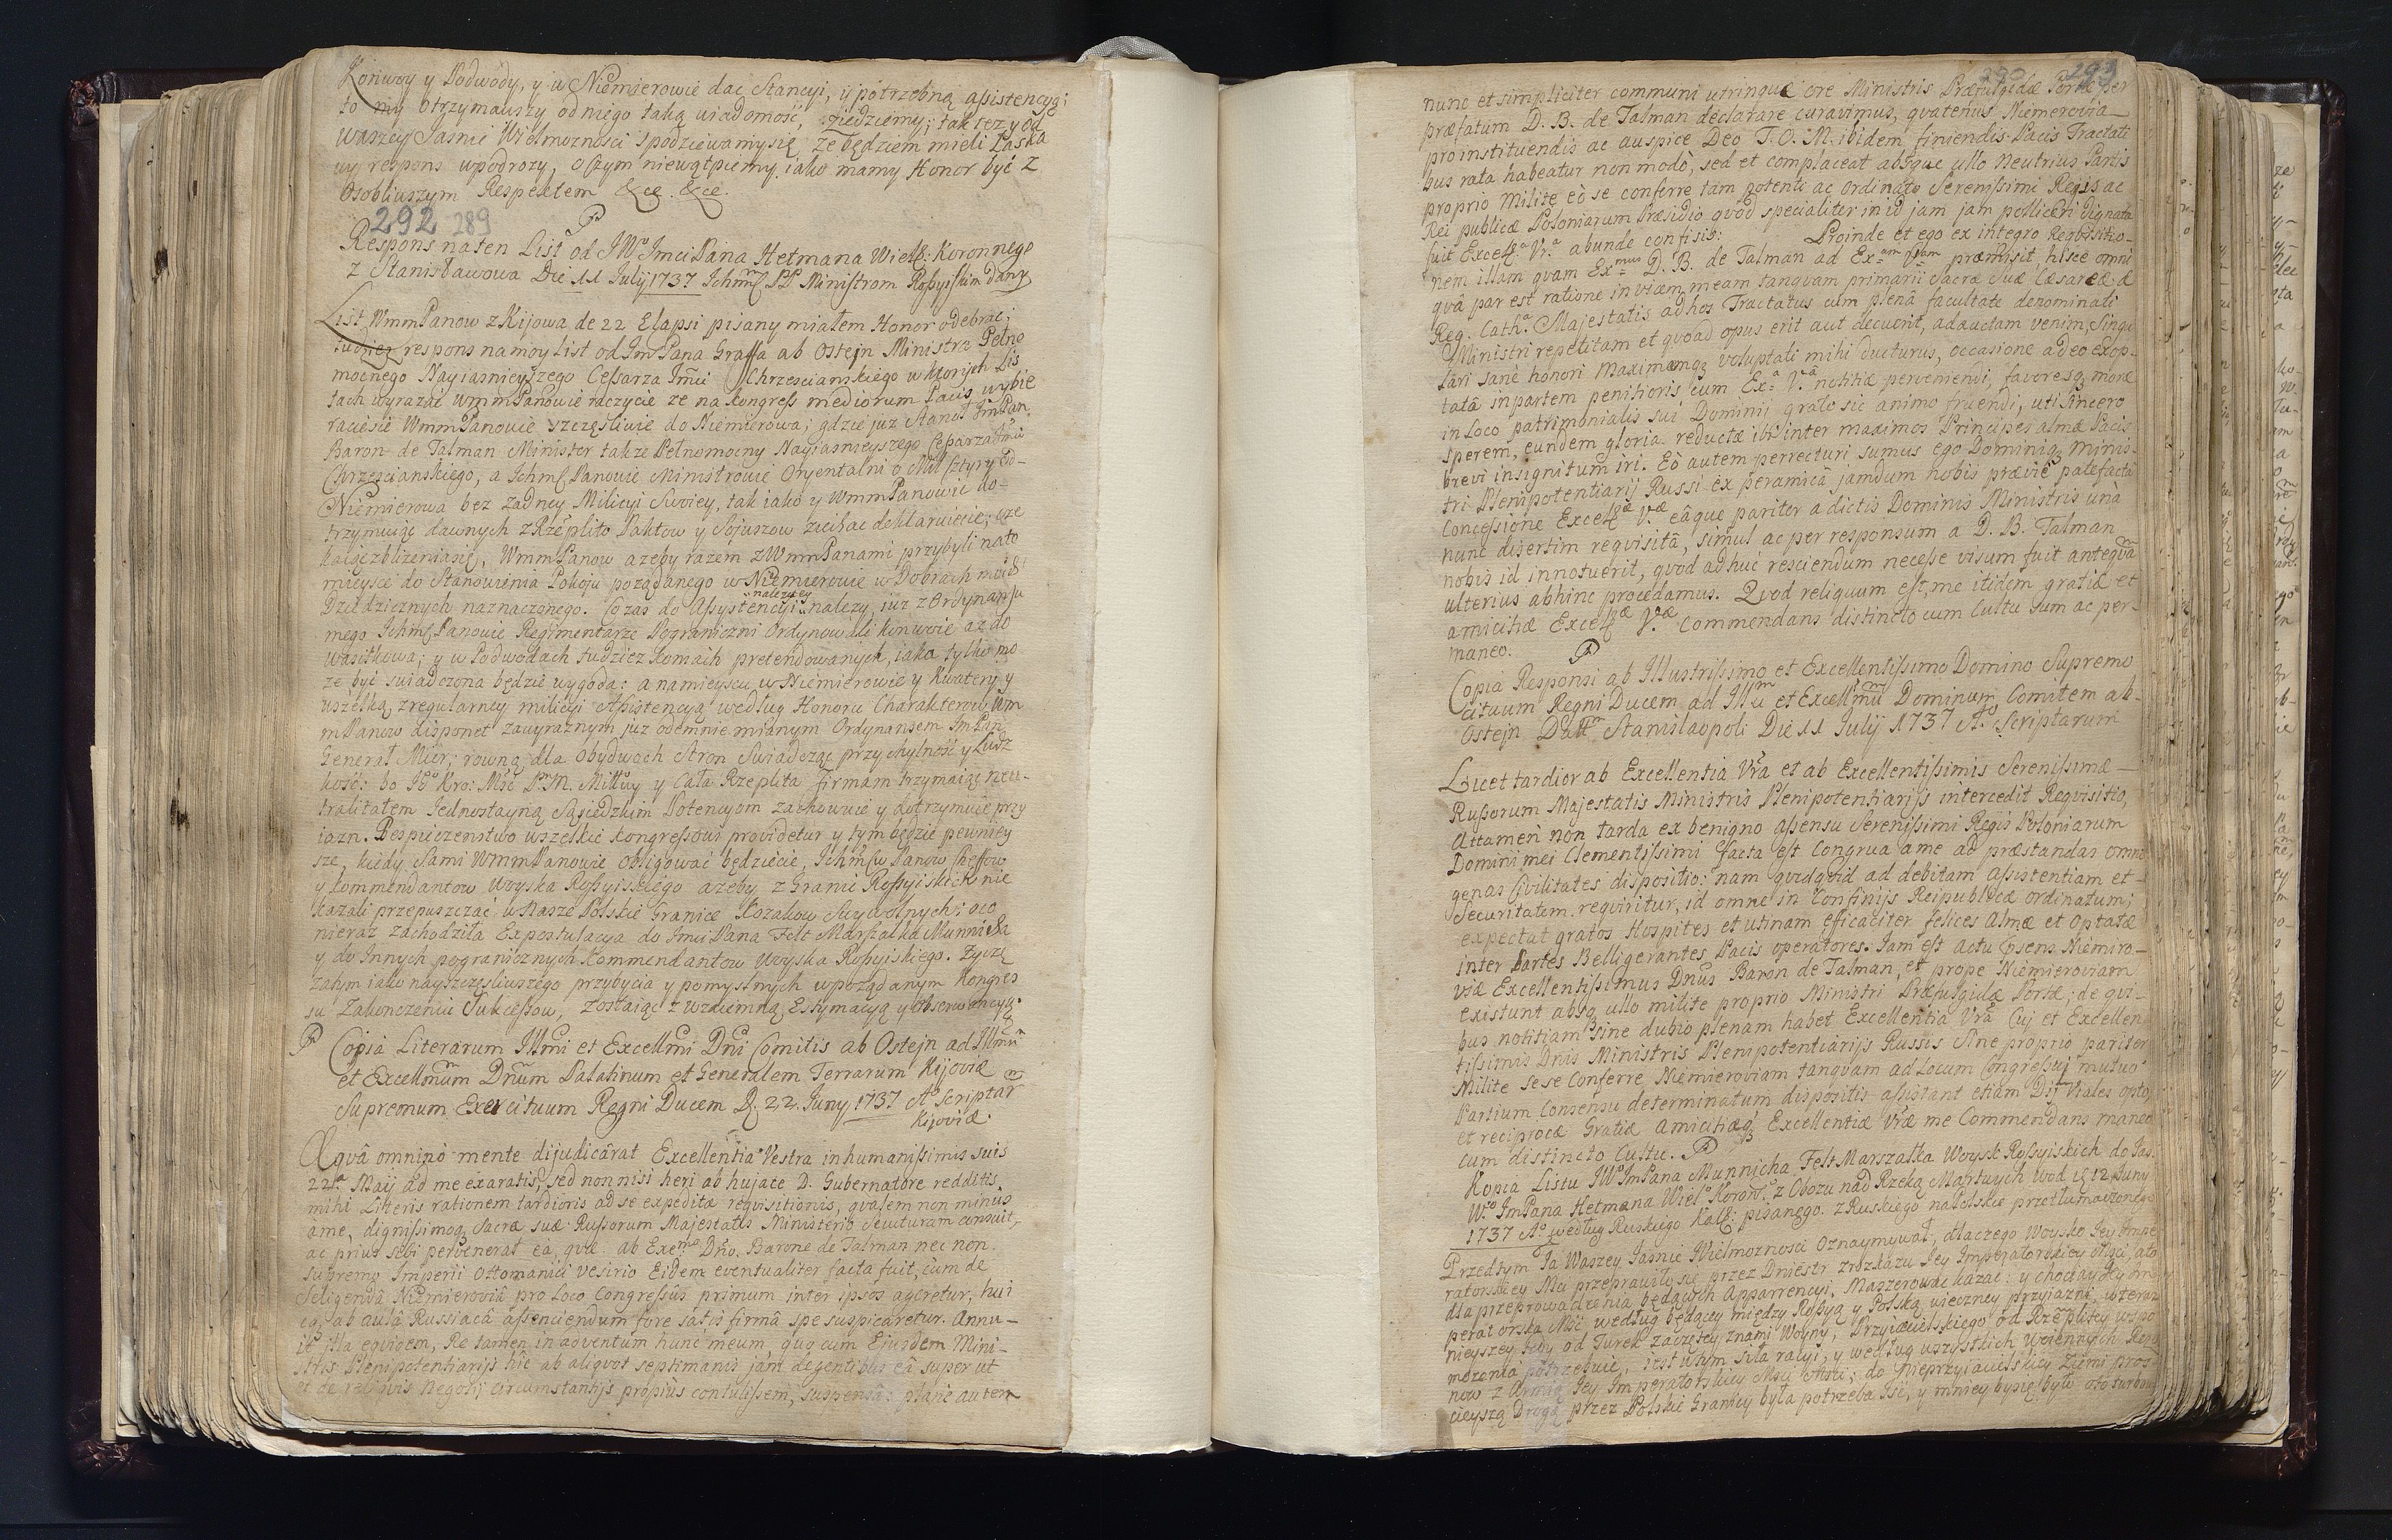 Konwoy y Podwody, y w Niemierowie dac Stancyi, y potrzebną assistencyą;
to my otrzymawszy od niego taką wiadomość, ziedziemy; tak tez y od
Waszey Jasnie Wielmoznosci spodziewamysię, ze będziem mieli Łaska
wy respons wpodrozy, o czym niewątpiemy. iako mamy Honor być z
Osobliwszym Respektem &ce. &ce.
292 289
Respons naten List od JWo Imci Pana Hetmana Wielk: Koronnego
z Stanisławowa Die 11 July 1737 Ichmć PP Ministrom Rossyiskim dany
List WmmPanow z Kijowa de 22 Elapsi pisany miałem Honor odebrac;
tudziez respons na moy List od Im Pana Graffa ab Ostejn Ministra Pełno
mocnego Nayiasnieyszego Cessarza Imci Chrzescianskiego w ktorych Lis
tach wyrazać WmmPanowie raczycie ze na kongress mediorum Pacis wybie
racie się WmmPanowie szczęsliwie do Niemierowa; gdzie juz stanoł Im Pan
Baron de Talman Minister takze Pełnomocny Nayiasnieyszego Cessarza Imci
Chrzescianskiego, a Ichmć Panowie Ministrowie Oryentalni o Mil sztyry od
Niemierowa bez zadney Milicyi Swoiey, tak iako y WmmPanowie do-
trzymuiąc dawnych z Rzeplitą Paktow y Sojuszow ziechac deklaruiecie; cze
kaiąc zblizenia się, WmmPanow azeby razem z WmmPanami przybyli nato
mieysce do Stanowienia Pokoju poządanego w Niemierowie w Dobrach moich
Dziedzicznych naznaczonego. Co zas do Assystencyi nalezy, iuz z Ordynansu
mego Ichmć Panowie Regimentarze Pograniczni Ordynowali Konwoie az do
Wasilkowa; y w Podwodach tudziez Komach pretendowanych, iaka tylko mo
ze być swiadczona będzie wygoda: a namieyscu w Niemierowie y Kwatery y
wszelką z regularney milicyi Assistencyą według Honoru Charakterow Wm
mPanow disponet zawyraznym juz odemnie mianym Ordynansem Im Pan
Generał Mier, rowną dla obydwoch stron Swiadcząc przychylność y Ludz
kość: bo JKo Kro: Mść P.M. Miłćwy y Cała Rzeplita firmam trzymaiąc neu-
tralitatem Jednostayną Sąsiedzkim Potencyom zachowuie y dotrzymuie przy
iazn. Bespieczenstwo wszelkie kongressowi providetur y tym będzie pewniey
sze, kiedy Sami WmmPanowie obligować będziecie, Ichmćw Panow Sheffow
y Kommendantow Woyska Rossyiskiego azeby z Granic Rossyiskich nie
kazali przepuszczać w Nasze Polskie Granice Kozakow Swywolnych; oco
nieraz zachodziła Expostulacya do Imci Pana Felt Marszałka Munnicha
y do Innych pogranicznych Kommendantow Woyska Rossyiskiego. Zyczę
zatym iako nayszczęsliwszego przybycia y pomyslnych w poządanym Kongres
su Zakonczeniu Sukcessow, zostaiąc z wzaiemną Estymacyą y Obserwancyą.
Copia Literarum Illmi et Excellmi Dni Comitis ab Ostejn ad Illmum
et Excellmum Dnum Palatinum et Generalem Terrarum Kijoviæ
Supremum Exercituum Regni Ducem D. 22. Juny 1737 Ao Scriptar
Kijoviæ.
Æquâ omninò mente dijudicârat Excellentia Vestra inhumanissimis suis
22a Maij ad me exaratis, sed non nisi heri ab hujace D. Gubernatore redditis
mihi Litteris rationem tardioris ad se expeditæ requisitionis, qvalem non minus
âme, dignissimoq Sacræ suæ Russorum Majestatis Ministerio Secuturam censuit,
ac prius sibi pervenerat ea, quæ ab Exemo Dño. Barone de Talman nec non
supremo Imperii Ottomanici vesirio Eidem eventualiter facta fuit, cùm de
Seligendâ Niemieroviâ pro Loco Congressûs primum inter ipsos ageretur, hui
cq ab aulâ Russiacâ assenciendum fore satis firmâ spe suspicaretur. Annu-
it illa eqvidem, Re tamen in adventum hunc meum, quo cum Eiusdem Mini-
stris Plenipotentiarijs hîc ab aliqvot septimanis jam degentibus eâ super ut
et de reliqvis Negotij circumstantijs propiùs contulissem, suspensa: planè autem
290 293
nunc et simpliciter communi utrinque ore Ministris Præfulgidæ Portæ per
præfatum D. B. de Talman declarare curavimus, qvatenus Niemerovia
pro instituendis ac auspice Deo T. O. M. ibidem finiendis Pacis Tractati
bus rata habeatur non modò, sed et complaceat absque ullo Neutrius Partis
proprio Milite eò se conferre tam potenti ac Ordinato Serenissimi Regis ac
Rei publicæ Poloniarum Præsidio qvod specialiter in id jam jam pelliceri dignata
fuit Excellᵃ Vrᵃ abunde confisis: Proinde et ego ex integro Reqvisitio-
nem illam qvam Exmus D. B. de Talman ad Exam Vram præmisit, hisce omni
qvâ par est ratione in vicem meam tanqvam primarii Sacræ Suæ Cæsareæ &
Reg. Cathᵃ. Majestatis ad hos Tractatus cum plenâ facultate denominati
Ministri repetitam et qvoad opus erit aut decuerit, adauctam venim, Singu
lâri sanè honori Maximæq voluptati mihi ducturus, occasione adeo exop-
tatâ in partem penitioris cum Exᵃ Vᵃ notitiæ perveniendi, favoresq moræ
in Loco patrimonialis sui Dominij grato sic animo fruendi, uti Sincero
sperem, eundem gloria reductæ ibi inter maximos Principes almæ Pacis
brevi insignitum iri. Eò autem perrecturi sumus ego Dominiq Minis-
tri Plenipotentiarij Russi ex peramicâ jamdum nobis præviè patefactâ
Concessione Excellæ Væ eâque pariter a dictis Dominis Ministris unà
nunc disertim reqvisitâ, simul ac per responsum a D. B. Talman
nobis id innotuerit, qvod adhuc resciendum necesse visum fuit anteqvã
ulterius abhinc procedamus. Qvod reliquum est, me itidem gratiæ et
amicitiæ Excellæ Væ Commendans distincto cum Cultu Sum ac per-
maneo.
Copia Responsi ab Illustrissimo et Excellentissimo Domino Supremo
cituum Regni Ducem ad Illm et Excellmum Dominum Comitem ab
Ostejn Datt Stanislaopoli Die 11 July 1737 Ao Scriptarum
Licet tardior ab Excellentia Vrã et ab Excellentissimis Serenissimæ
Russorum Majestatis Ministris Plenipotentiarijs intercedit Reqvisitio,
Attamen non tarda ex benigno assensu Serenissimi Regis Poloniarum
Domini mei Clementissimi facta est Congrua âme ad præstandas omni
genas Civilitates dispositio: nam qvidqvid ad debitam assistentiam et
Securitatem reqviritur, id omne in Confinijs Reipublicæ ordinatum;
expectat gratos Hospites et utinam efficaciter felices Almæ et Optatæ
inter Partes Belligerantes Pacis operatores. Iam est actu ipsens Niemiro-
viæ Excellentissimus Dnus Baron de Talman, et prope Niemieroviam
existunt absq ullo milite proprio Ministri Præfulgidæ Portæ; de qvi-
bus notitiam sine dubio plenam habet Excellentia Vrã Cuj et Excellen
tissimis Dnis Ministris Plenipotentiarijs Russis Sine proprio pariter
Milite sese Conferre Niemieroviam tanqvam ad Locum Congressuj mutuo
Partium Consensu determinatum dispositis assistant etiam Dij Viales opto,
et reciprocæ Gratiæ amicitiæq Excellentiæ Vræ me Commendans maneo
cum distincto Cultu.
Kopia Listu JWo ImPana Munnicha Felt Marszałka Woysk Rossyiskich do Jas.
Wgo ImPana Hetmana Wielo Korono. z Obozu nad Rzeką Martwych Wod 12 Juny
1737 Ao według Ruskiego Kal: pisanego. z Ruskiego na Polskie przetłumaczonego
Przedtym Ja Waszey Jasnie Wielmoznosci Oznaymywał, dlaczego Woysko Jey Impe
ratorskiey Mci przeprawiło się przez Dniestr z rozkazu Jey Imperatorskiey Mści, ato
dla przeprowadzenia będących Apparrencyi, Maszerowac kazał: y chociay Jey Im
peratorska Mść według będącey między Rossyą y Polską wieczney przyiazni, w teraz
nieyszey teby od Turek zaczętey znami Woyny, Przyiacielskiego od Rzeplitey wspo
mozenia potrzebuie, iest w tym siła racyi, y według wszystkich woiennych Regu
now z Armią Jey Imperatorskiey Mści Moscie; do Nieprzyiacielskiey Ziemi pros
cieyszą Drogą przez Polskie Granicy była potrzeba Isc, y mniey by się było ototurbowa